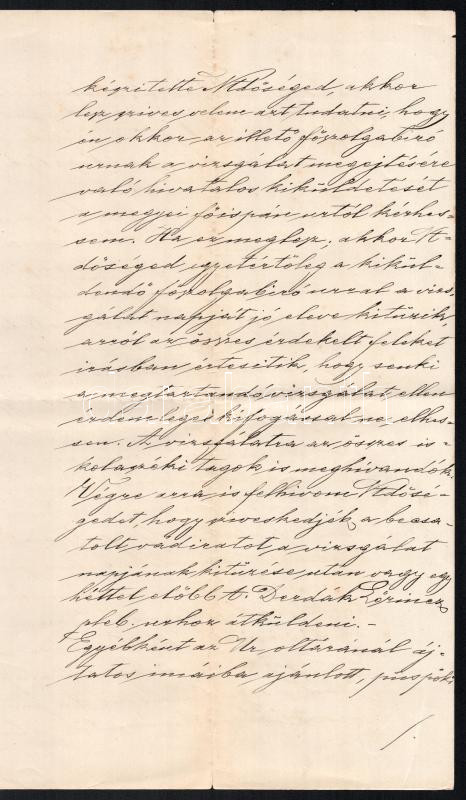 készitette Ntdőséged, akkor
lesz szives velem azt tudatni, hogy
én okkor az illető főszolgabiró
urnak a vizsgálat megejtésére
való hivatalos kiküldetését
a megyei főispán urtól kérhes-
sem. Ha ez meglesz, akkor Nt-
dőséged egyetértőleg a kikül-
dendő főszolgabiró urral a vizs-
gálat napját jó eleve kitűzik,
arról az összes érdekelt feleket
irásban értesitik, hogy senki
a megtartandó vizsgálat ellen
érdemleges kifogással ne élhes-
sen. A vizsgálatra az összes is-
kolaszéki tagok is meghivandók.
Végre arra is felhivom Ntdősé-
gedet, hogy sziveskedjék a becsa-
tolt vádiratot a vizsgálat
napjának kitűzése után vagy egy
héttel előbb t. Derdák Lőrincz
pleb. urhoz átküldeni. -
Egyébként az Ur oltáránál áj-
tatos imáiba ajánlott, püspöki
/.